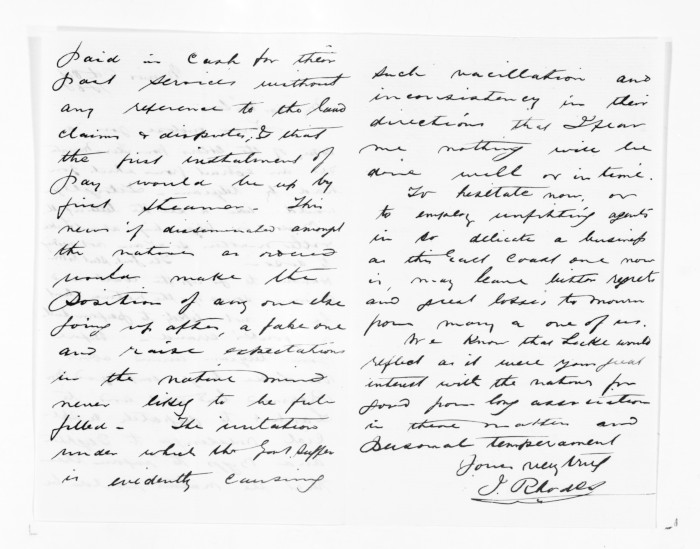 paid in cash for their
past services without
any reference to the land
claims & disputes, & that
the first instalment of
pay would be up by
first steamer. This
news if disseminated amongst
the natives as ordered
would make the
position of any one else
going up after, a fake one
and raise expectations
in the native mind
never likely to be ful-
filled - The irritation
under which the Govt suffer
is evidently causing
such vacillation and
inconsistency in their
directions that I fear
me nothing will be
done well or in time.
To hesitate now, or
to employ unfitting agents
in so delicate a business
as this East Coast one now
is, may leave bitter regrets
and great losses to mourn
from many a one of us.
We know that Locke would
reflect as it were your great
interest with the natives for
good from long association
in these matters and
personal temperament
Yours very truly
J. Rhodes